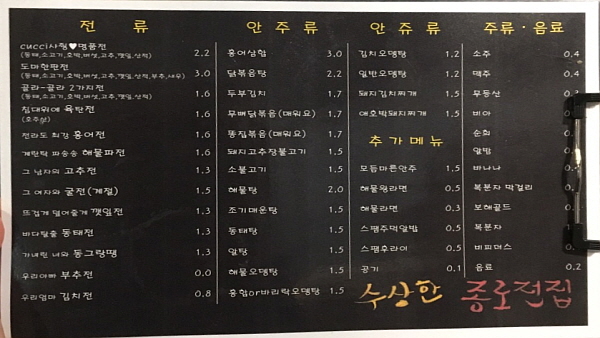 전 류
cucci사령♥명품전 2.2
(동태,소고기,호박,버섯,고추,깻잎,산적)
도마한판전 3.0
(동태,소고기,호박,버섯,고추,깻잎,산적,부추,새우)
골라~골라 2가지전 1.6
(동태,소고기,호박,버섯,고추,깻잎,산적)
침대위에 육탄전 1.6
전라도 최강 홍어전 1.6
계란탁 파송송 해물파전 1.6
그 남자의 고추전 1.3
그 여자와 굴전(계절) 1.5
뜨겁게 덮어줄게 깻잎전 1.3
바다탈출 동태전 1.3
가녀린 너와 동그랑땡 1.3
우리아빠 부추전 0.0
우리엄마 김치전 0.8
안 주 류
홍어삼합 3.0
닭볶음탕 2.2
두부김치 1.7
무뼈닭볶음(매워요) 1.7
똥집볶음(매워요) 1.7
돼지고추장불고기 1.5
소불고기 1.5
해물탕 2.0
조기매운탕 1.5
동태탕 1.5
알탕 1.5
해물오뎅탕 1.5
홍합or바지락오뎅탕 1.5
안 쥬 류
김치오뎅탕 1.2
일반오뎅탕 1.2
돼지김치찌개 1.5
애호박돼지찌개 1.5
추 가 메 뉴
모듬마른안주 1.5
해물왕라면 0.5
해물라면 0.3
스팸주먹알밥 0.5
스팸후라이 0.5
공기 0.1
주류·음료
소주 0.4
맥주 0.4
무등산 0.
비아
순희
알밤
바나나
복분자 막걸리
보해골드
복분자
비피더스
음료 0.2
수상한 종로전집